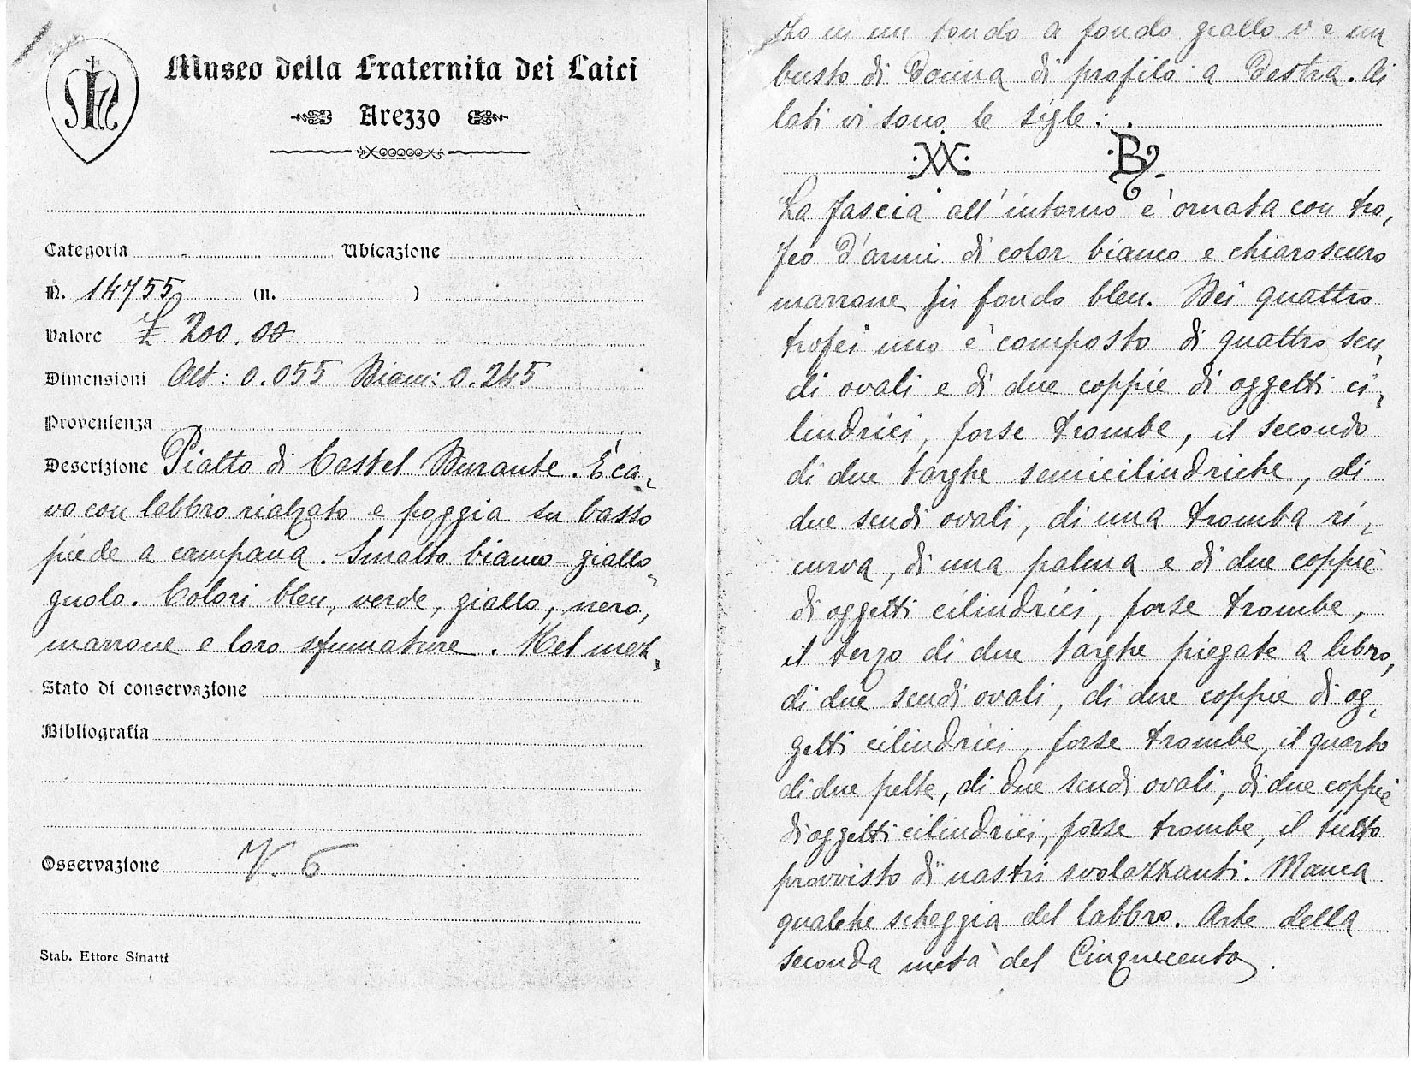 Museo della Fraternita dei Laici
Arezzo
Categoria Ubicazione
N. 14755 (n. )
Valore £ 200.00
Dimensioni Alt: 0.055 Diam: 0.245
Provenienza
Descrizione Piatto di Castel Durante. È ca-
vo con labbro rialzato e poggia su basso
piede a campana. Smalto bianco giallo-
gnolo. Colori bleu, verde, giallo, nero,
marrone e loro sfumature. Nel mez-
Stato di conservazione
Bibliografia
Osservazione V. 6
Stab. Ettore Sinatti
zo in un tondo a fondo giallo v'è un
busto di Donna di profilo a Destra. Ai
lati vi sono le sigle:
B
La fascia all'intorno è ornata con tro-
feo d'armi di color bianco e chiaroscuro
marrone su fondo bleu. Dei quattro
trofei uno è composto di quattro scu-
di ovali e di due coppie di oggetti ci-
lindrici, forse trombe, il secondo
di due targhe semicilindriche, di
due scudi ovali, di una tromba ri-
curva, di una palma e di due coppie
di oggetti cilindrici, forse trombe,
il terzo di due targhe piegate a libro,
di due scudi ovali, di due coppie di og-
getti cilindrici, forse trombe, il quarto
di due pelte, di due scudi ovali, di due coppie
di oggetti cilindrici, forse trombe, il tutto
provvisto di nastri svolazzanti. Manca
qualche scheggia del labbro. Arte della
seconda metà del Cinquecento.